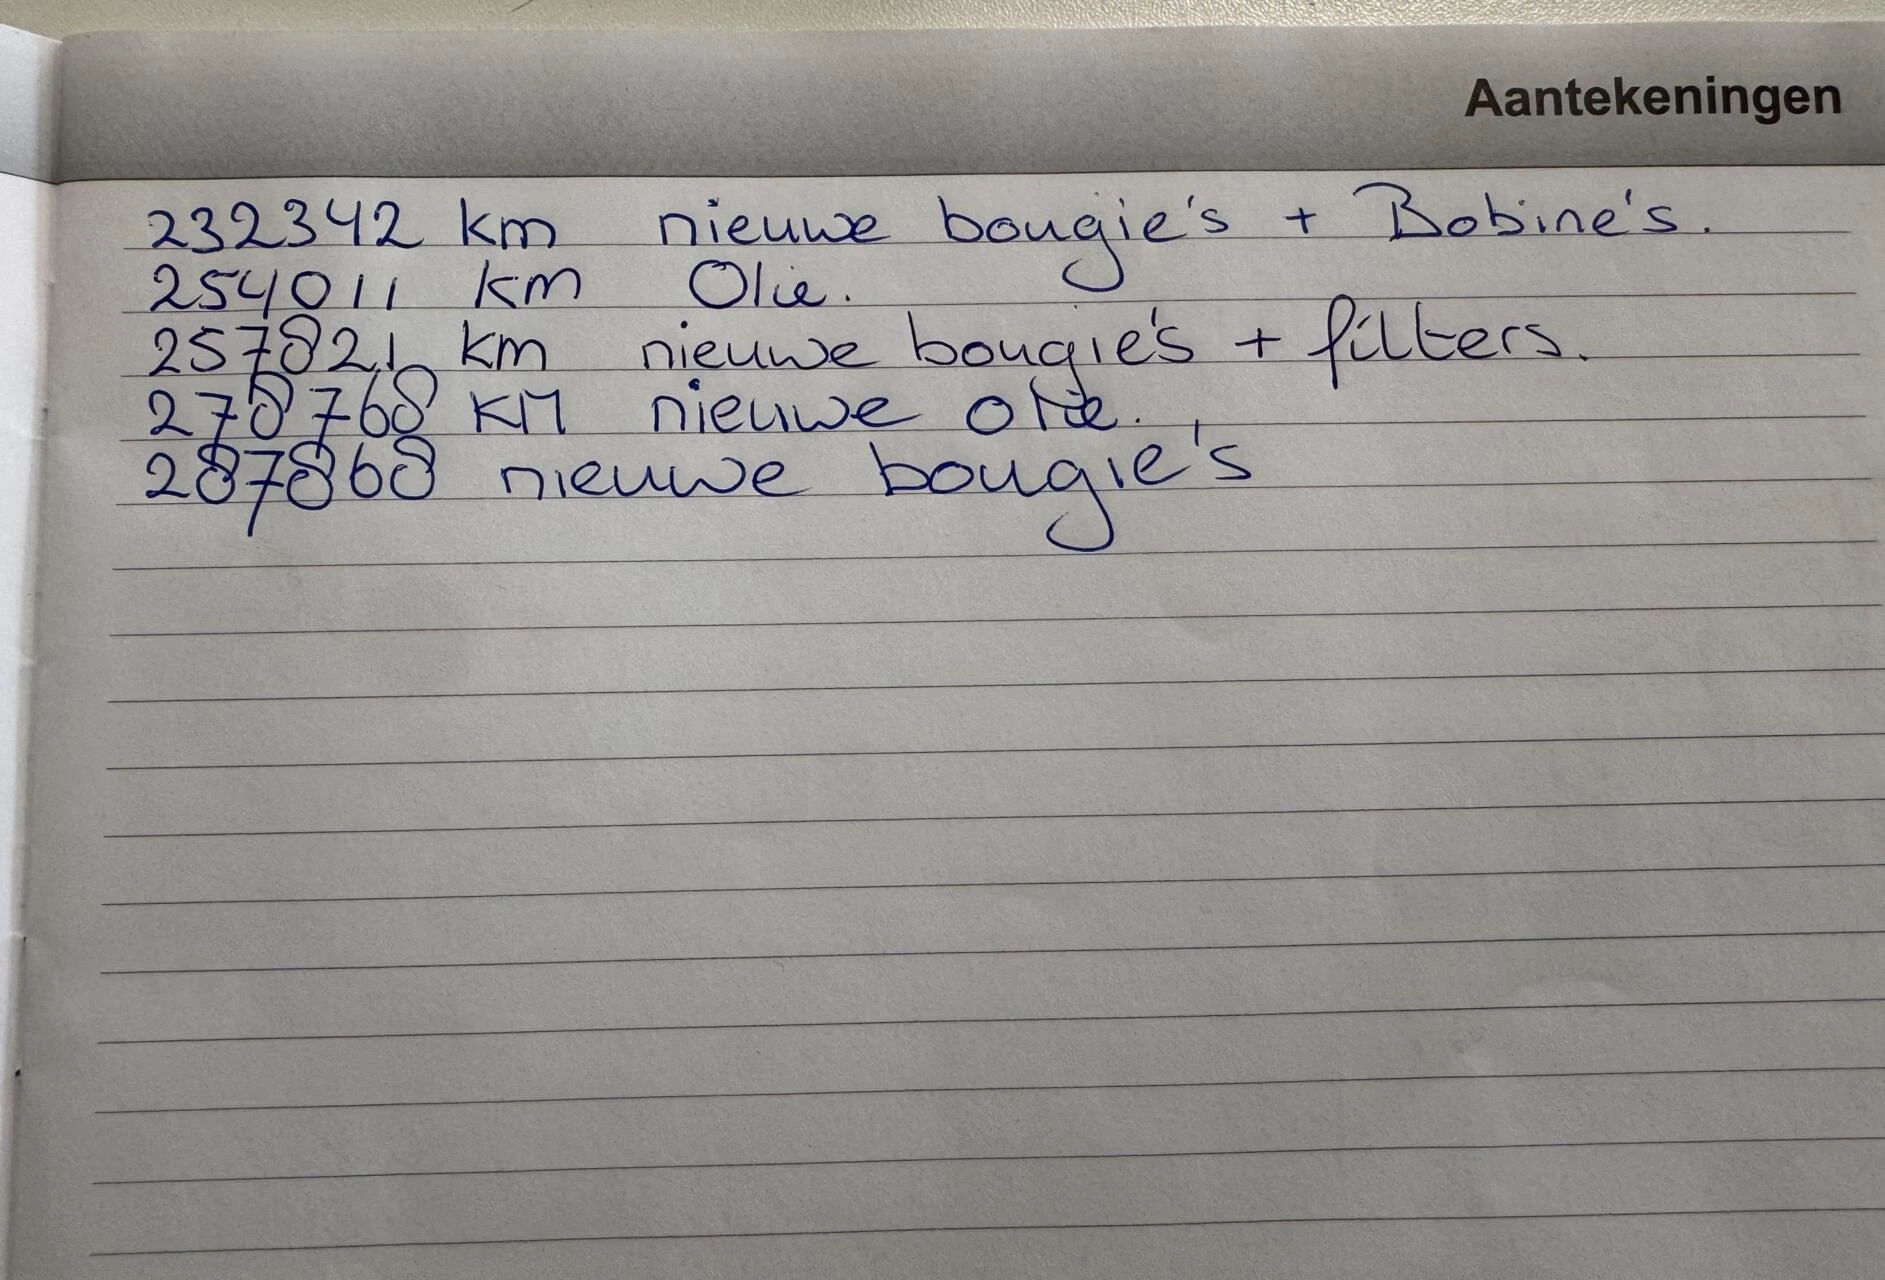 Aantekeningen
232342 km nieuwe bougie's + Bobine's.
254011 km Olie.
257821 km nieuwe bougie's + filters.
278768 KM nieuwe olie.
287868 nieuwe bougie's